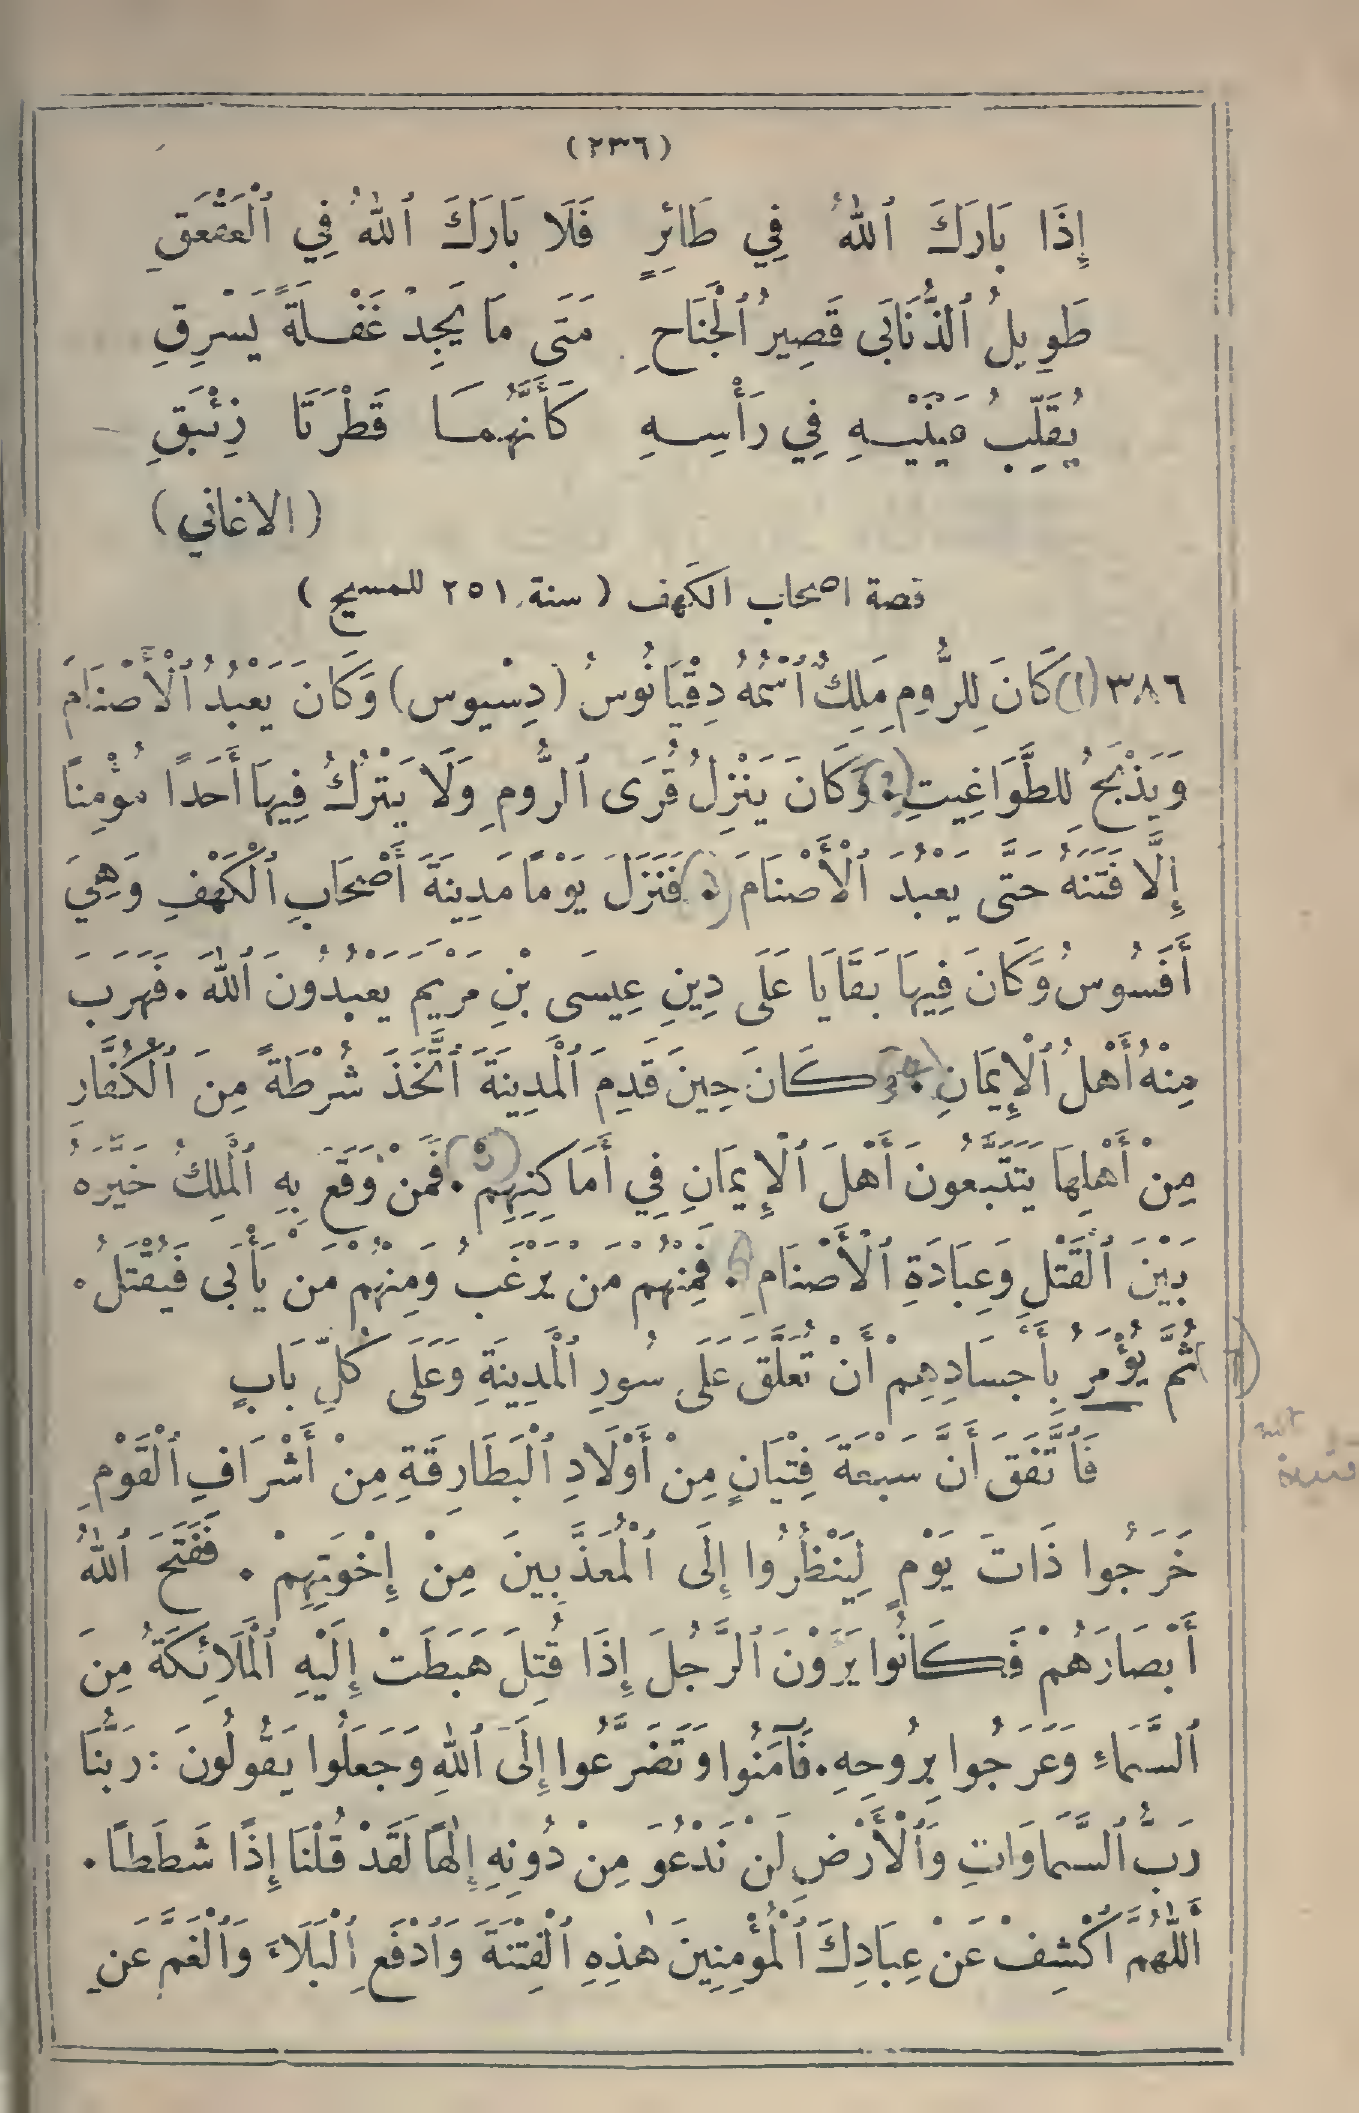 (٢٣٦)
إِذَا بَارَكَ ٱللهُ فِي طَائِرٍ فَلَا بَارَكَ ٱللهُ فِي ٱلْعَقْعَقِ
طَوِيلُ ٱلذُّنَابَى قَصِيرُ ٱلْجَنَاحِ مَتَى مَا يَجِدْ غَفْلَةً يَسْرِقِ
يُقَلِّبُ عَيْنَيْهِ فِي رَأْسِهِ كَأَنَّهُمَا قَطْرَتَا زِئْبَقِ
(الاغاني)
قصة اصحاب الكهف (سنة ٢٥١ للمسيح)
٣٨٦ (١) كَانَ لِلرُّومِ مَلِكٌ ٱسْمُهُ دِقْيَانُوسُ (دِسْيوس) وَكَانَ يَعْبُدُ ٱلْأَصْنَامَ
وَيَذْبَحُ لِلطَّوَاغِيتِ. وَكَانَ يَنْزِلُ قُرَى ٱلرُّومِ وَلَا يَتْرُكُ فِيهَا أَحَدًا مُؤْمِنًا
إِلَّا فَتَنَهُ حَتَّى يَعْبُدَ ٱلْأَصْنَامَ. فَنَزَلَ يَوْمًا مَدِينَةَ أَصْحَابِ ٱلْكَهْفِ وَهِيَ
أَفَسُوسُ وَكَانَ فِيهَا بَقَايَا عَلَى دِينِ عِيسَى بْنِ مَرْيَمَ يَعْبُدُونَ ٱللهَ. فَهَرَبَ
مِنْهُ أَهْلُ ٱلْإِيمَانِ. وَكَانَ حِينَ قَدِمَ ٱلْمَدِينَةَ ٱتَّخَذَ شُرْطَةً مِنَ ٱلْكُفَّارِ
مِنْ أَهْلِهَا يَتَتَبَّعُونَ أَهْلَ ٱلْإِيمَانِ فِي أَمَاكِنِهِمْ. فَمَنْ وَقَعَ بِهِ ٱلْمَلِكُ خَيَّرَهُ
بَيْنَ ٱلْقَتْلِ وَعِبَادَةِ ٱلْأَصْنَامِ. فَمِنْهُمْ مَنْ يَرْغَبُ وَمِنْهُمْ مَنْ يَأْبَى فَيُقْتَلُ.
ثُمَّ يُؤْمَرُ بِأَجْسَادِهِمْ أَنْ تُعَلَّقَ عَلَى سُورِ ٱلْمَدِينَةِ وَعَلَى كُلِّ بَابٍ
فَٱتَّفَقَ أَنَّ سَبْعَةَ فِتْيَانٍ مِنْ أَوْلَادِ ٱلْبَطَارِقَةِ مِنْ أَشْرَافِ ٱلْقَوْمِ
خَرَجُوا ذَاتَ يَوْمٍ لِيَنْظُرُوا إِلَى ٱلْمُعَذَّبِينَ مِنْ إِخْوَتِهِمْ. فَفَتَحَ ٱللهُ
أَبْصَارَهُمْ فَكَانُوا يَرَوْنَ ٱلرَّجُلَ إِذَا قُتِلَ هَبَطَتْ إِلَيْهِ ٱلْمَلَائِكَةُ مِنَ
ٱلسَّمَاءِ وَعَرَجُوا بِرُوحِهِ. فَآمَنُوا وَتَضَرَّعُوا إِلَى ٱللهِ وَجَعَلُوا يَقُولُونَ: رَبُّنَا
رَبُّ ٱلسَّمَاوَاتِ وَٱلْأَرْضِ لَنْ نَدْعُوَ مِنْ دُونِهِ إِلٰهًا لَقَدْ قُلْنَا إِذًا شَطَطًا.
أَللّٰهُمَّ ٱكْشِفْ عَنْ عِبَادِكَ ٱلْمُؤْمِنِينَ هٰذِهِ ٱلْفِتْنَةَ وَٱدْفَعِ ٱلْبَلَاءَ وَٱلْغَمَّ عَنِ